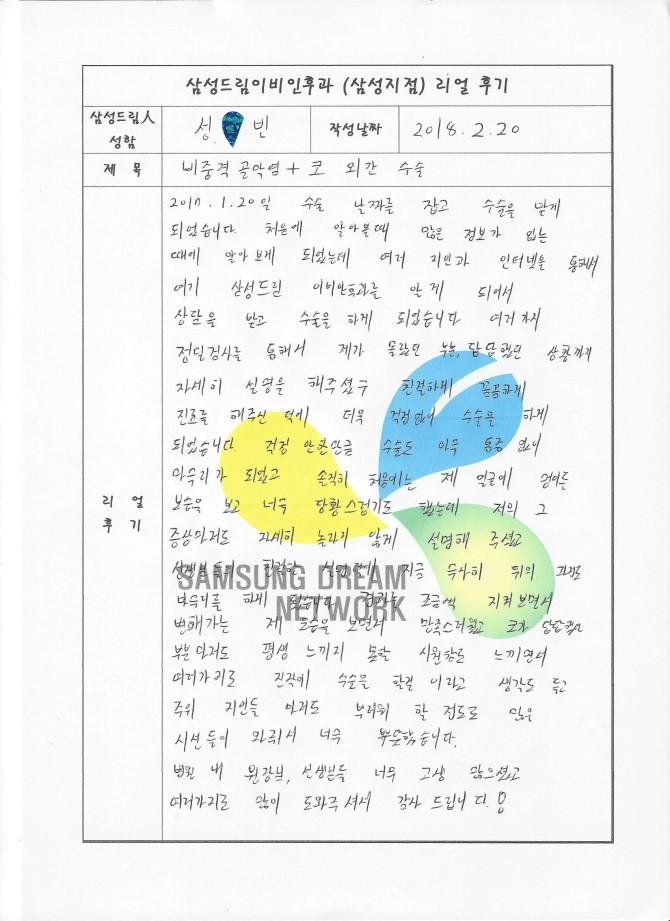 삼성드림이비인후과 (삼성지점) 리얼 후기
삼성드림人 성함
성 빈
작성날짜
2018.2.20
제 목
비중격 골막염 + 코 외관 수술
리 얼 후 기
2017.1.20일 수술 날짜를 잡고 수술을 받게
되었습니다. 처음에 알아볼때 많은 정보가 있는
때에 알아보게 되었는데 여러 지인과 인터넷을 통해서
여기 삼성드림 이비인후과를 알게 되어서
상담을 받고 수술을 하게 되었습니다 여러가지
정밀검사를 통해서 제가 몰랐던 부분, 답답했던 상황까지
자세히 설명을 해주셨구 친절하게 꼼꼼하게
진료를 해주신 덕에 더욱 걱정없이 수술을 하게
되었습니다. 걱정 안한만큼 수술도 아무 통증 없이
마무리가 되었고 솔직히 처음에는 제 얼굴에 멍이든
모습을 보고 너무 당황스럽기도 했는데 저의 그
증상마저도 자세히 놀라지 않게 설명해 주셨고
선생님들의 친절한 설명덕에 지금 무사히 뒤의
마무리를 하게 됬습니다 경과를 조금씩 지켜보면서
변해가는 제 모습을 보면서 만족스러웠고 코가 답답했던
부분마저도 평생 느끼지 못할 시원함도 느끼면서
여러가지로 진작에 수술을 할걸 이라고 생각도 들고
주위 지인들 마저도 부러워 할 정도로 많은
시선들이 와줘서 너무 뿌듯했습니다.
병원 내 원장님, 선생님들 너무 고생 많으셨고
여러가지로 많이 도와주셔서 감사 드립니다.!
SAMSUNG DREAM
NETWORK